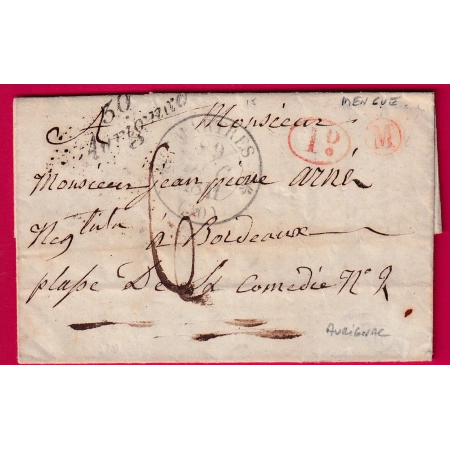 MENGUE
50
Aurignac
A Monsieur
1D.
M
Monsieur jean pierre arné
Neg à Bordeaux
plasse De La Comedie N° 9
6
AURIGNAC